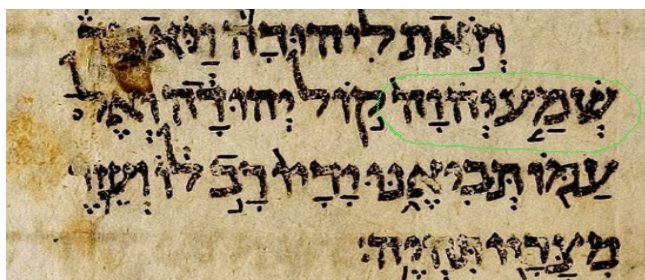 וְזֹאת לִיהוּדָה וַיֹּאמַר
שְׁמַע יְהוָה קוֹל יְהוּדָה וְאֶל
עַמּוֹ תְּבִיאֶנּוּ יָדָיו רָב לוֹ וְעֵזֶר
מִצָּרָיו תִּהְיֶה׃